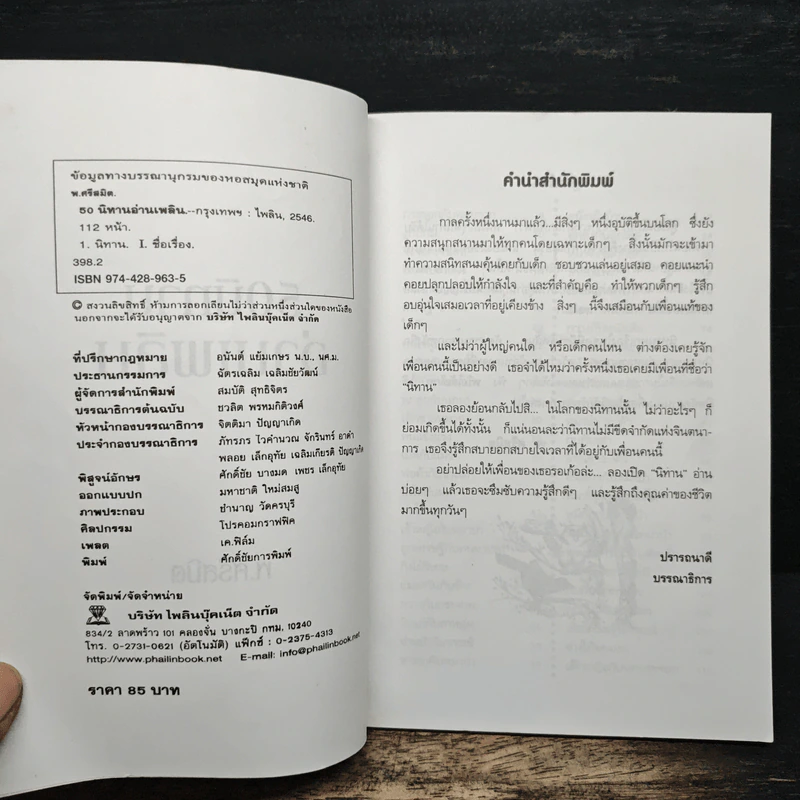 ข้อมูลทางบรรณานุกรมของหอสมุดแห่งชาติ
พ.ศรีสมิต.
50 นิทานอ่านเพลิน.--กรุงเทพฯ : ไพลิน, 2546.
112 หน้า.
1. นิทาน. I. ชื่อเรื่อง.
398.2
ISBN 974-428-963-5
© สงวนลิขสิทธิ์ ห้ามการลอกเลียนไม่ว่าส่วนหนึ่งส่วนใดของหนังสือ
นอกจากจะได้รับอนุญาตจาก บริษัท ไพลินบุ๊คเน็ต จำกัด
ที่ปรึกษากฎหมาย อนันต์ แย้มเกษร น.บ., นศ.ม.
ประธานกรรมการ ฉัตรเฉลิม เฉลิมชัยวัฒน์
ผู้จัดการสำนักพิมพ์ สมบัติ สุทธิจิตร
บรรณาธิการต้นฉบับ ชวลิต พรหมกิติวงศ์
หัวหน้ากองบรรณาธิการ จิตติมา ปัญญาเกิด
ประจำกองบรรณาธิการ ภัทรภร ไวคำนวณ จักรินทร์ อาดำ
พลอย เล็กอุทัย เฉลิมเกียรติ ปัญญาเกิด
พิสูจน์อักษร ศักดิ์ชัย บางมด เพชร เล็กอุทัย
ออกแบบปก มหาชาติ ใหม่สมสู
ภาพประกอบ ชำนาญ วัดครบุรี
ศิลปกรรม โปรคอมกราฟฟิค
เพลต เค.ฟิล์ม
พิมพ์ ศักดิ์ชัยการพิมพ์
จัดพิมพ์/จัดจำหน่าย
บริษัท ไพลินบุ๊คเน็ต จำกัด
834/2 ลาดพร้าว 101 คลองจั่น บางกะปิ กทม. 10240
โทร. 0-2731-0621 (อัตโนมัติ) แฟ็กซ์ : 0-2375-4313
http://www.phailinbook.net E-mail: info@phailinbook.net
ราคา 85 บาท
คำนำสำนักพิมพ์
กาลครั้งหนึ่งนานมาแล้ว...มีสิ่งๆ หนึ่งอุบัติขึ้นบนโลก ซึ่งยัง
ความสนุกสนานมาให้ทุกคนโดยเฉพาะเด็กๆ สิ่งนั้นมักจะเข้ามา
ทำความสนิทสนมคุ้นเคยกับเด็ก ชอบชวนเล่นอยู่เสมอ คอยแนะนำ
คอยปลุกปลอบให้กำลังใจ และที่สำคัญคือ ทำให้พวกเด็กๆ รู้สึก
อบอุ่นใจเสมอเวลาที่อยู่เคียงข้าง สิ่งๆ นี้จึงเสมือนกับเพื่อนแท้ของ
เด็กๆ
และไม่ว่าผู้ใหญ่คนใด หรือเด็กคนไหน ต่างต้องเคยรู้จัก
เพื่อนคนนี้เป็นอย่างดี เธอจำได้ไหมว่าครั้งหนึ่งเธอเคยมีเพื่อนที่ชื่อว่า
“นิทาน”
เธอลองย้อนกลับไปสิ... ในโลกของนิทานนั้น ไม่ว่าอะไรๆ ก็
ย่อมเกิดขึ้นได้ทั้งนั้น ก็แน่นอนละว่านิทานไม่มีขีดจำกัดแห่งจินตนา-
การ เธอจึงรู้สึกสบายอกสบายใจเวลาที่ได้อยู่กับเพื่อนคนนี้
อย่าปล่อยให้เพื่อนของเธอรอเก้อล่ะ... ลองเปิด “นิทาน” อ่าน
บ่อยๆ แล้วเธอจะซึมซับความรู้สึกดีๆ และรู้สึกถึงคุณค่าของชีวิต
มากขึ้นทุกวันๆ
ปรารถนาดี
บรรณาธิการ